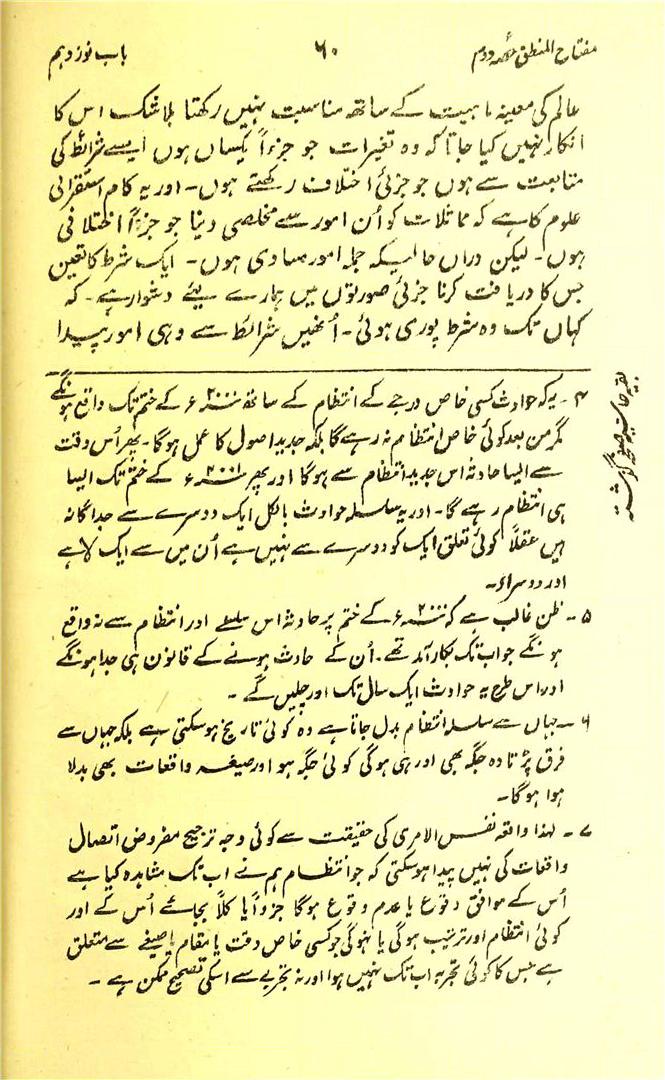 مفتاح المنطق حصہ دوم ۶۰ باب نوزدہم
عالم کی معینہ ماہیت کے ساتھ مناسبت نہیں رکھتا بلا شک اس کا
انکار نہیں کیا جاتا کہ وہ تغیرات جو جزءاً یکساں ہوں ایسے شرائط کی
متابعت سے ہوں جو جزئی اختلاف رکھتے ہوں۔ اور یہ کام استقرائی
علوم کا ہے کہ مماثلات کو اُن امور سے مخلصی دینا جو جزءاً اختلافی
ہوں۔ لیکن دراں حالیکہ جملہ امور مساوی ہوں۔ ایک شرط کا تعین
جس کا دریافت کرنا جزئی صورتوں میں ہمارے لیئے دشوار ہے۔ کہ
کہاں تک وہ شرط پوری ہوئی۔ اُنھیں شرائط سے وہی امور پیدا
بقیہ حاشیہ صفحہ گزشتہ
۴۔ یہ کہ حوادث کسی خاص درجے کے انتظام کے ساتھ ۲۰۰۰ء کے ختم تک واقع ہونگے
مگر من بعد کوئی خاص انتظام نہ رہے گا بلکہ جدید اصول کا عمل ہوگا۔ پھر اُس وقت
سے ایسا حادثہ اس جدید انتظام سے ہوگا اور پھر ۲۰۰۱ء کے ختم تک ایسا
ہی انتظام رہے گا۔ اور یہ سلسلہ حوادث بالکل ایک دوسرے سے جداگانہ
ہیں عقلاً کوئی تعلق ایک کو دوسرے سے نہیں ہے اُن میں سے ایک لا ہے
اور دوسرا ء۔
۵۔ ظن غالب ہے کہ ۲۰۰۰ء کے ختم پر حادثہ اس سلسلے اور انتظام سے نہ واقع
ہونگے جو اب تک بکار آمد تھے۔ اُن کے حادث ہونے کے قانون ہی جدا ہونگے
اور اس طرح یہ حوادث ایک سال تک اور چلیں گے۔
۶۔ جہاں سے سلسلہ انتظام بدل جاتا ہے وہ کوئی تاریخ ہوسکتی ہے بلکہ جہاں سے
فرق پڑتا وہ جگہ بھی اور ہی ہوگی کوئی جگہ ہو اور صیغہ واقعات بھی بدلا
ہوا ہوگا۔
۷۔ لہذا واقعہ نفس الامری کی حقیقت سے کوئی وجہ ترجیح مفروض اتصال
واقعات کی نہیں پیدا ہوسکتی کہ جو انتظام ہم نے اب تک مشاہدہ کیا ہے
اُس کے موافق وقوع یا عدم وقوع ہوگا جزواً یا کلاً بجائے اُس کے اور
کوئی انتظام اور ترتیب ہوگی یا نہوگی جو کسی خاص وقت یا مقام یا صیغے سے متعلق
ہے جس کا کوئی تجربہ اب تک نہیں ہوا اور نہ تجربے سے اسکی تصحیح ممکن ہے۔